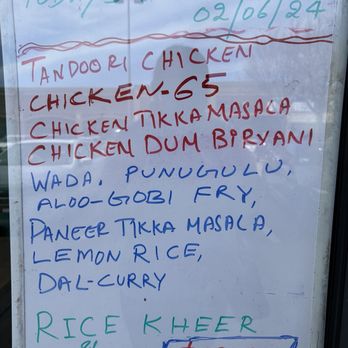 02/06/24
TANDOORI CHICKEN
CHICKEN-65
CHICKEN TIKKA MASALA
CHICKEN DUM BIRYANI
WADA, PUNUGULU,
ALOO-GOBI FRY,
PANEER TIKKA MASALA,
LEMON RICE,
DAL-CURRY
RICE KHEER